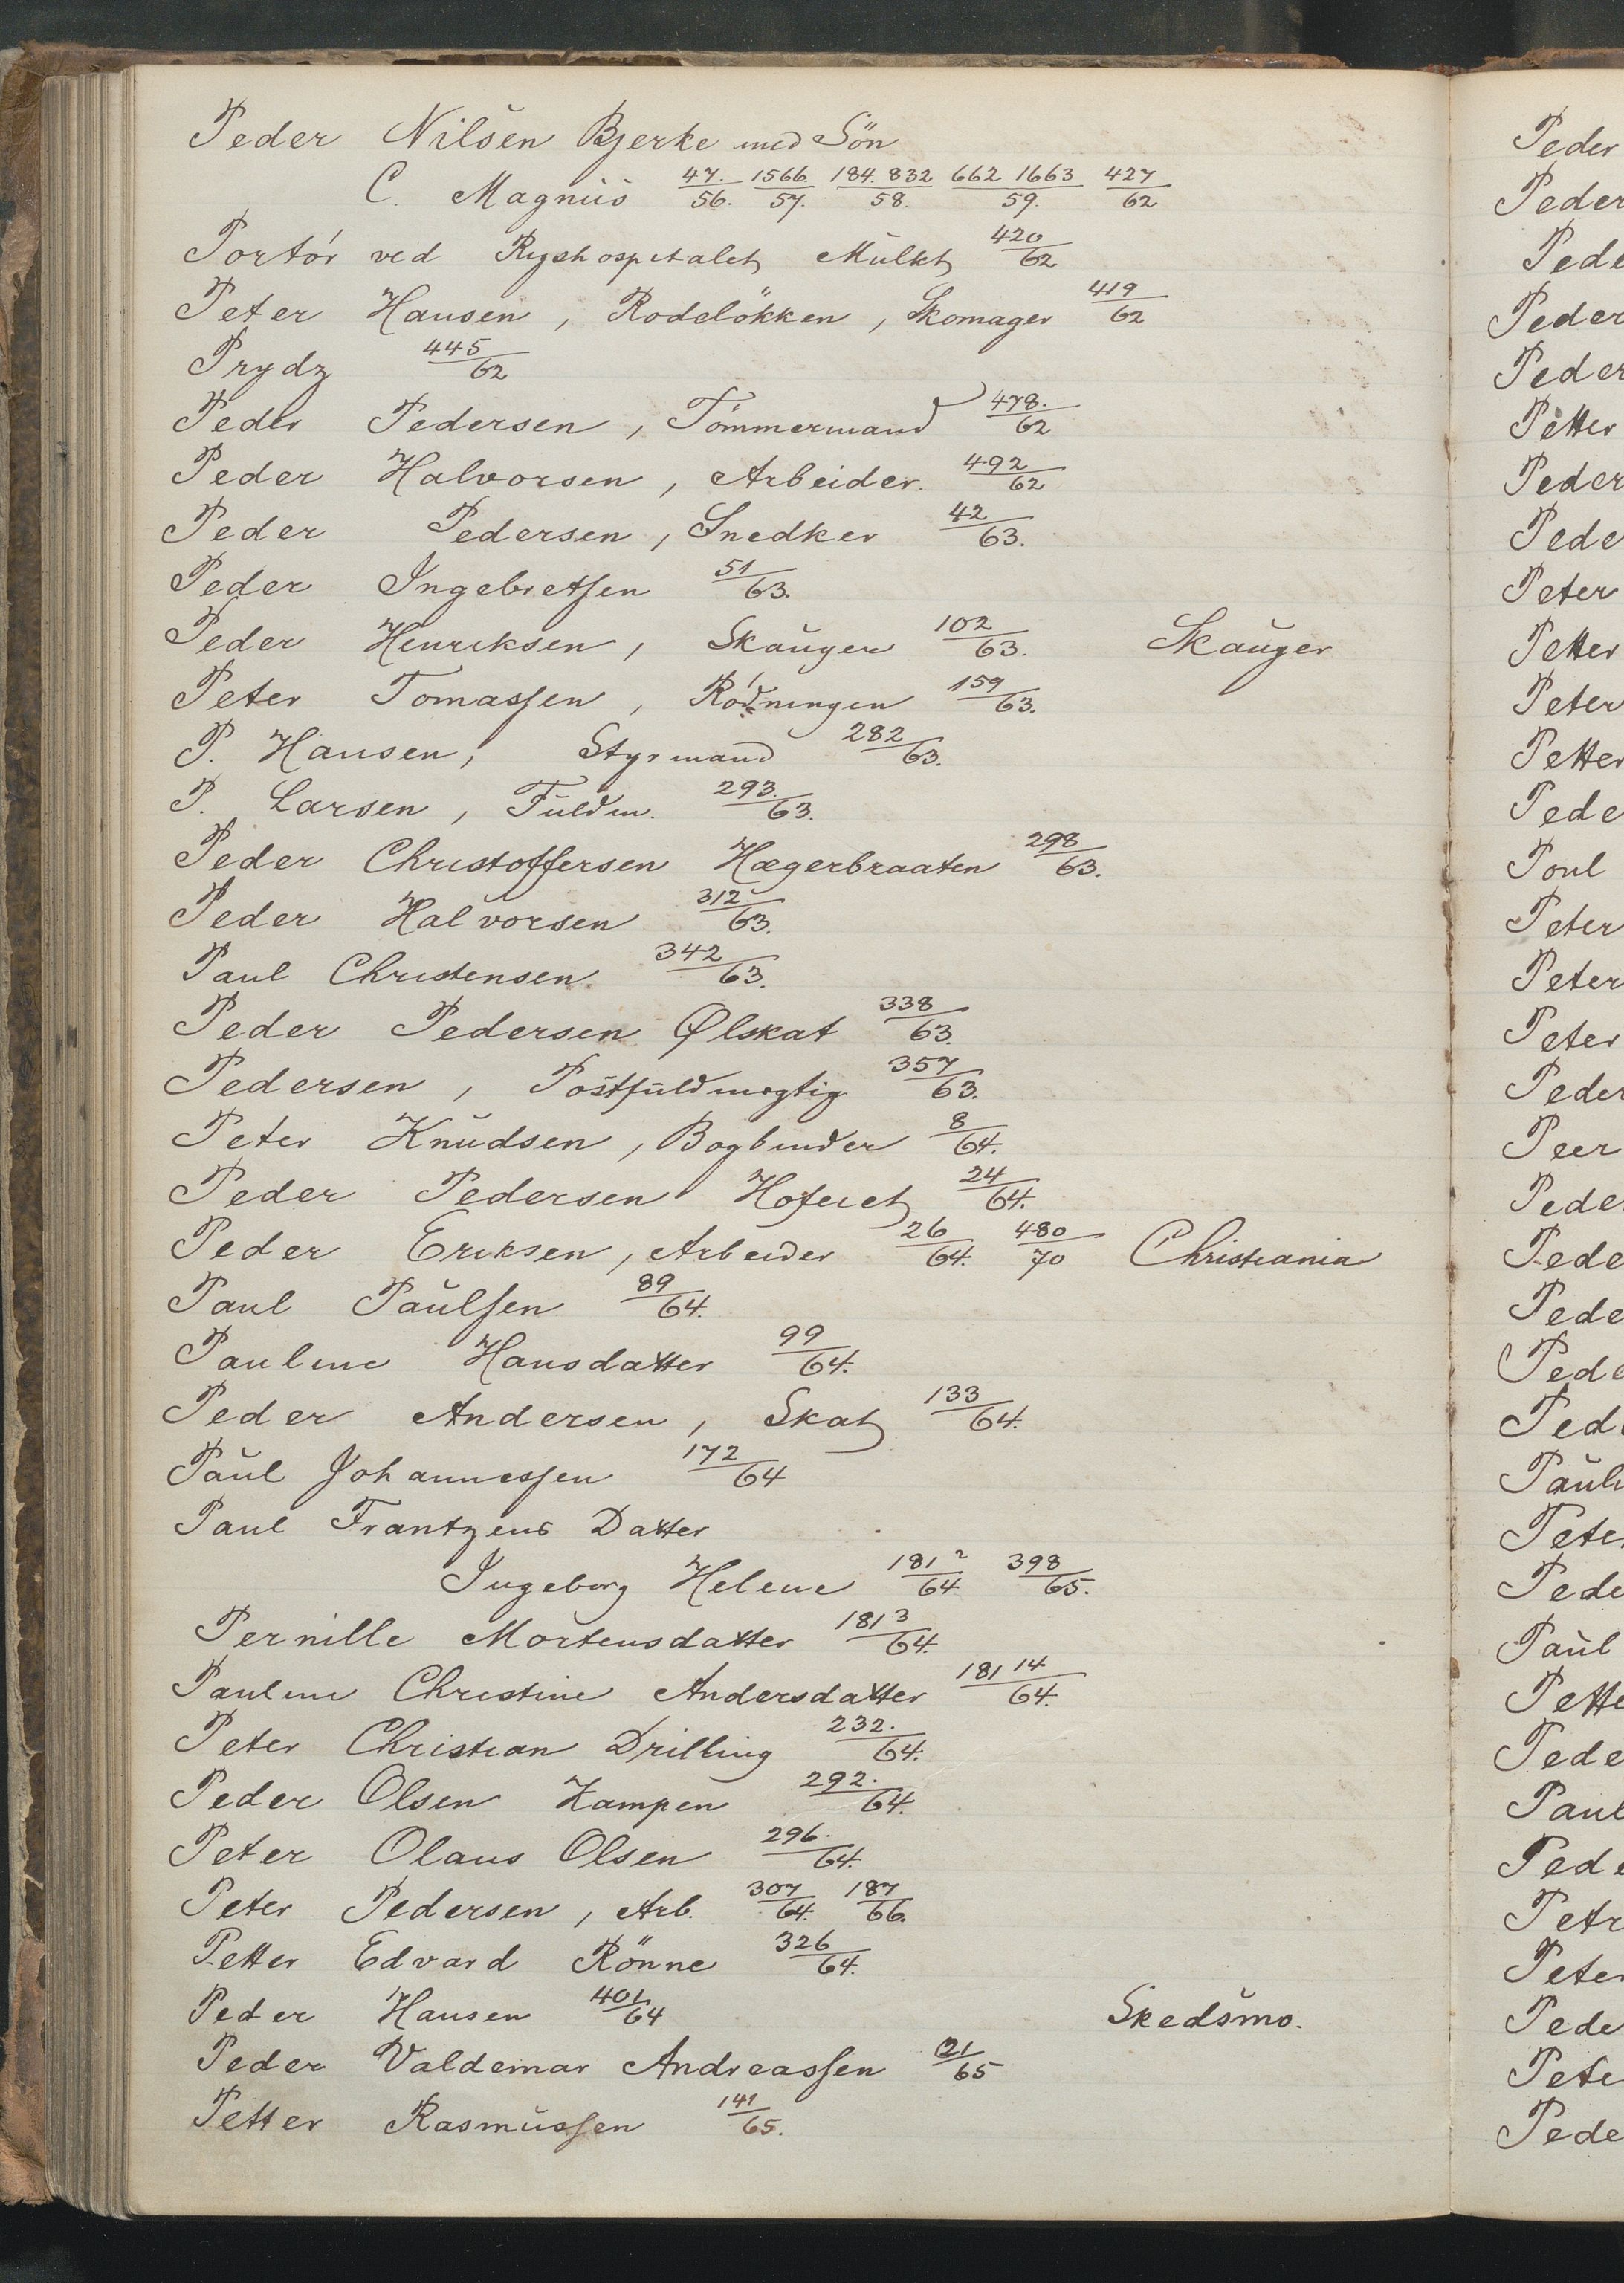 Peder Nilsen Bjerke med Sön
C. Magnus 47./56. 1566./57. 184. 832/58. 662 1663/59. 427/62
Portör ved Rigshospitalet, Mulkt, 420/62
Peter Hansen, Rodeløkken, Skomager 419/62
Prydz 445/62
Peder Pedersen, Tömmermand 478./62
Peder Halvorsen, Arbeider. 492/62
Peder Pedersen, Snedker 42/63.
Peder Ingebretsen 51/63.
Peder Henriksen, Skauger 102/63. Skauger
Peter Tomassen, Rödningen 159/63.
P. Hansen, Styrmand 282/63.
P. Larsen, Fuldm. 293./63.
Peder Christoffersen Hægerbraaten 298/63.
Peder Halvorsen 312/63.
Paul Christensen 342/63.
Peder Pedersen Ølskat 338/63.
Pedersen, Postfuldmægtig 357/63.
Peter Knudsen, Bogbinder 8/64.
Peder Pedersen 24/64.
Peder Eriksen, Arbeider 26/64. 480/70 Christiania
Paul Paulsen 89/64.
Pauline Hansdatter 99/64.
Peder Andersen, Skat 133/64.
Paul Johannessen 172/64
Paul Frantzens Datter
Ingeborg Helene 181 2/64 398/65.
Pernille Mortensdatter 181 3/64.
Pauline Christine Andersdatter 181 14/64.
Peter Christian Drilling 232./64.
Peder Olsen Kampen 292./64.
Peter Olaus Olsen 296./64.
Peter Pedersen, Arb. 307/64. 187/66.
Petter Edvard Rönne 326/64.
Peder Hansen 401/64 Skedsmo.
Peder Valdemar Andreassen 21/65
Petter Rasmussen 141/65.
Peder
Peder
Pede
Peder
Peder
Petter
Peder
Pede
Peter
Petter
Peter
Petter
Pede
Poul
Peter
Peter
Peter
Peder
Peer
Pede
Pede
Pede
Pede
Ped
Paul
Pete
Pede
Paul
Pette
Pede
Paul
Pede
Petr
Peter
Pede
Pete
Pede